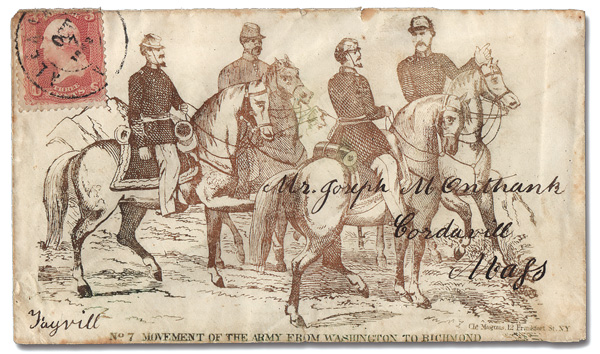 THREE
Mr. Joseph M Onthank
Cordavill
Mass
Fayvill
No 7 MOVEMENT OF THE ARMY FROM WASHINGTON TO RICHMOND
Chs Magnus, 12 Frankfort St. NY